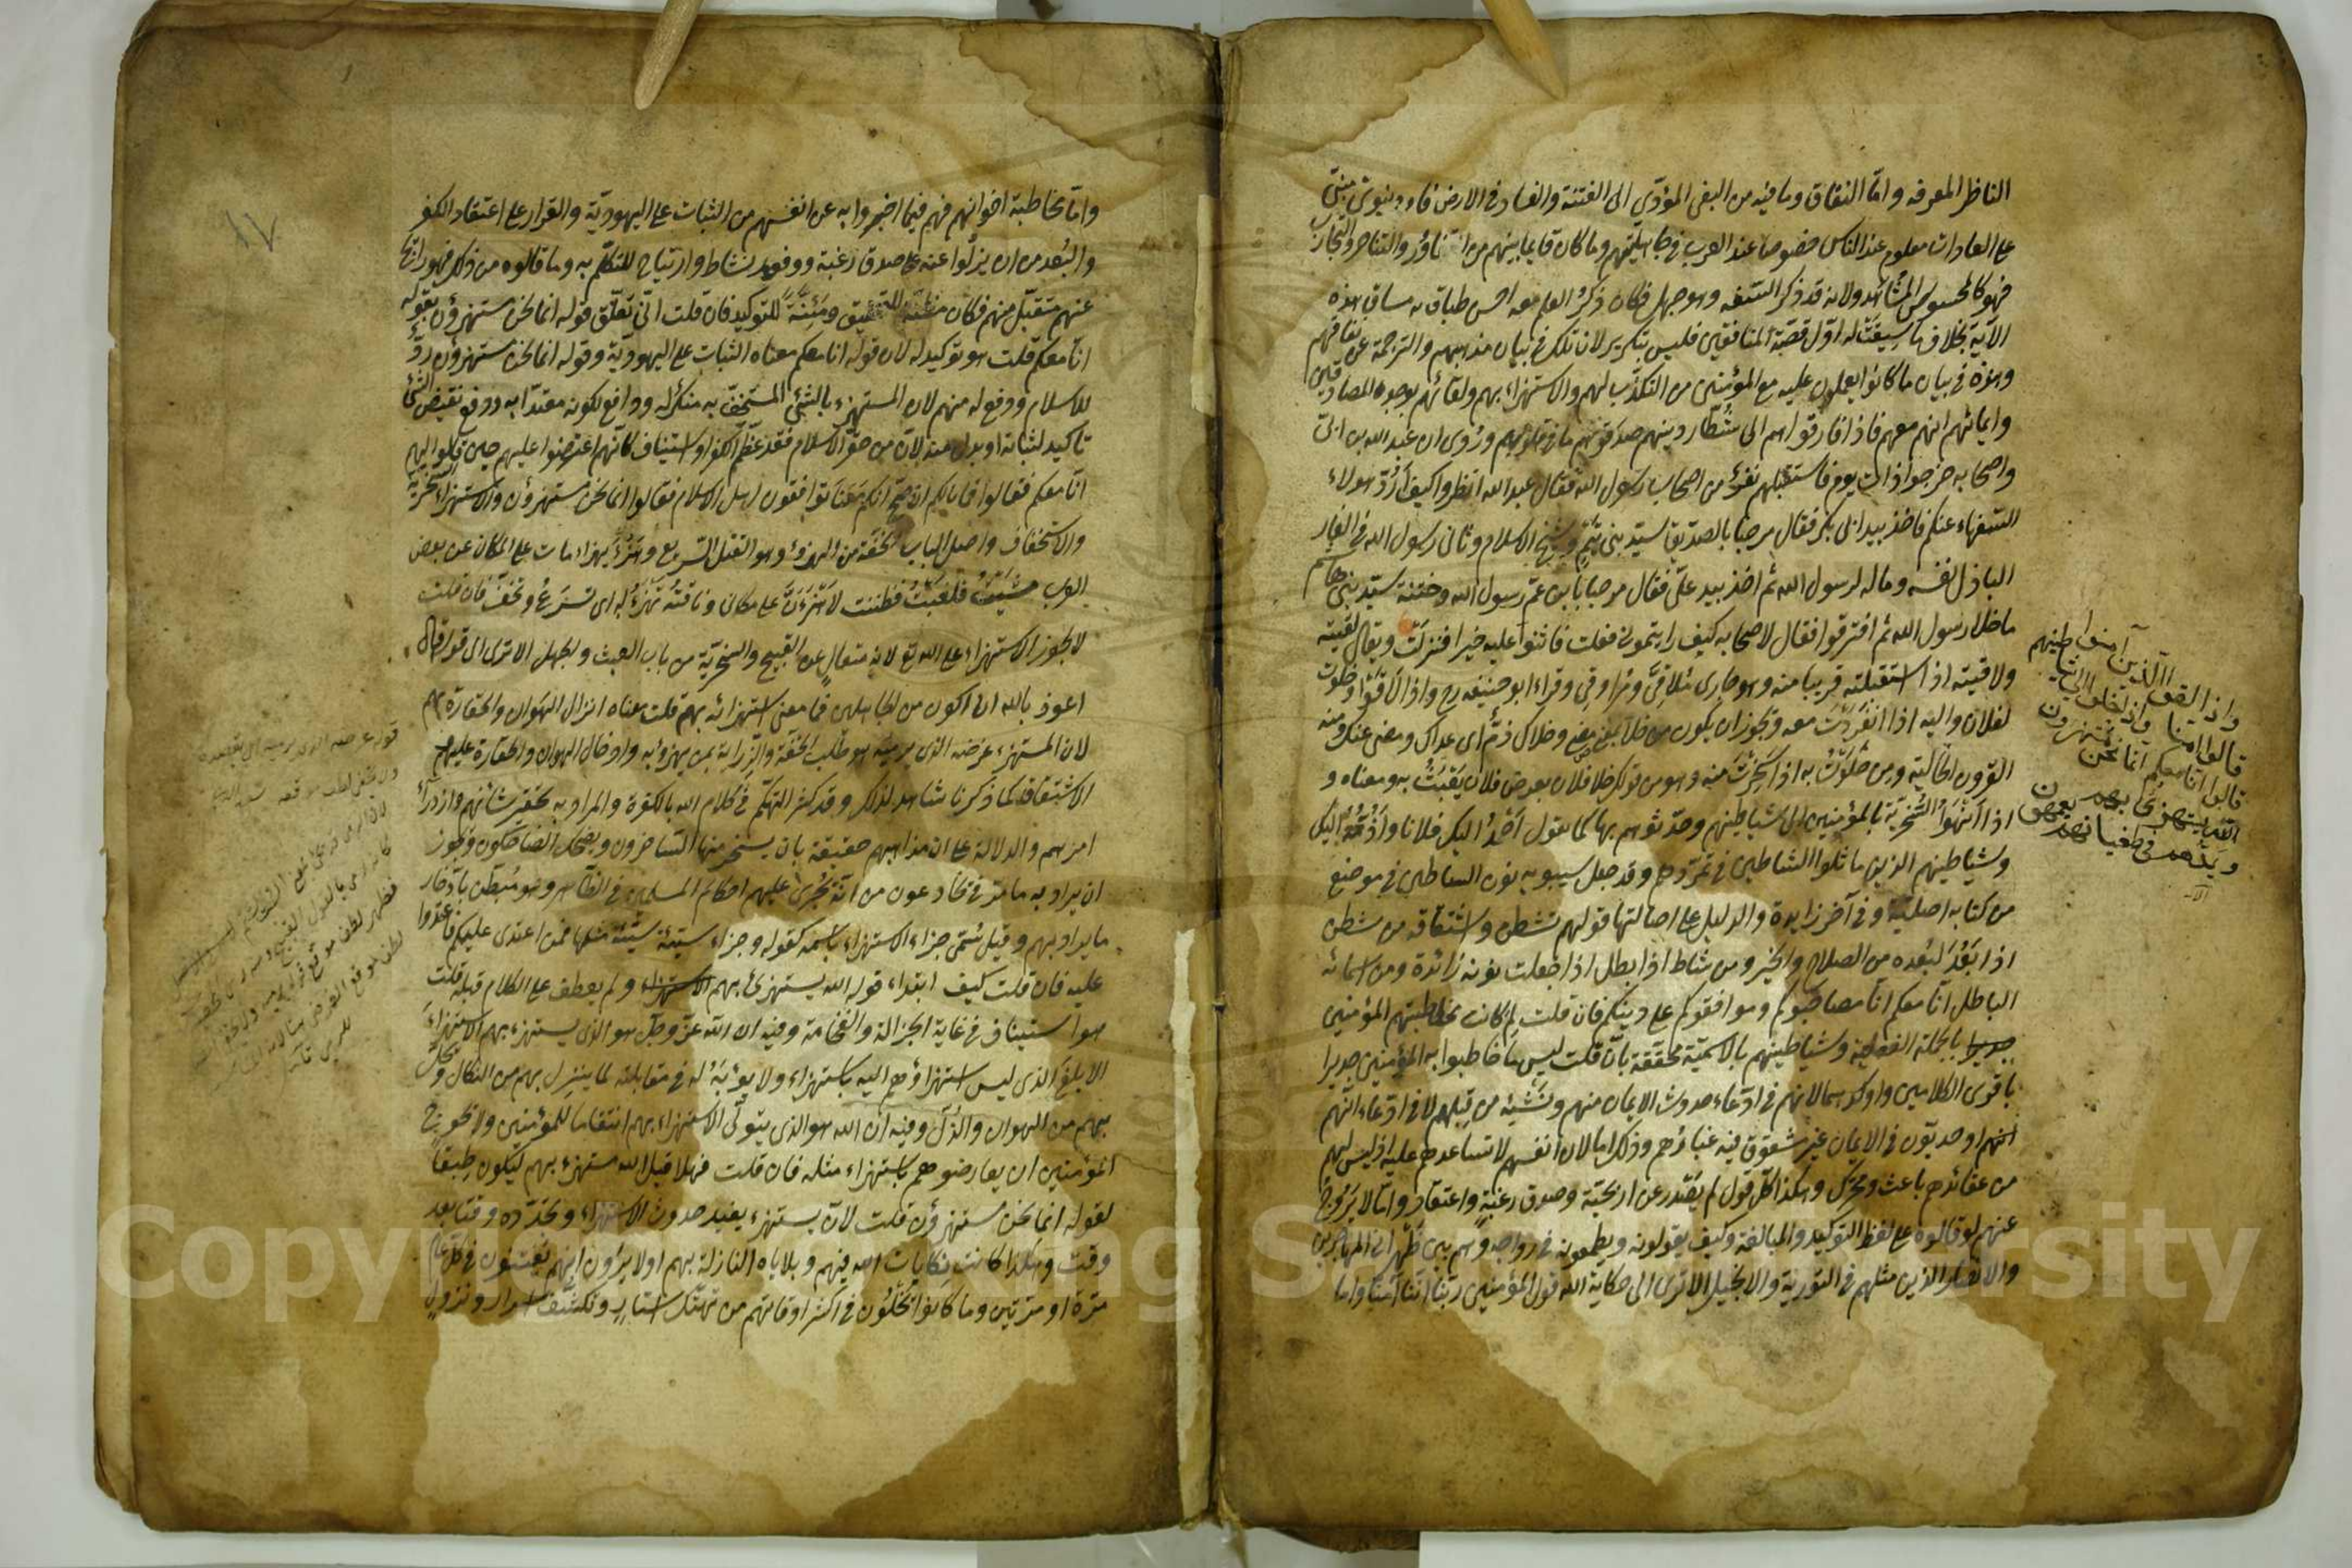 الناظر المعرفه واما النفاق وما فيه من البغى المؤدّى الى الفتنة والفساد فى الارض فامر دنيوى مبنىّ
على العادات معلوم عند الناس خصوصا عند العرب فى جاهليّتهم وما كان قايما بينهم من التغاور والتناحر والتحارب
فهو كالمحسوس المشاهد ولانه قد ذكر السّفه وهو جهل فكان ذكرُ العلم معه احسن طباقا له مساق هذه
الآية بخلاف ما سِيقَتْ له اوّل قصّة المنافقين فليس بتكرير لان تلك فى بيان مذهبهم والترجمة عن نفاقهم
وهذه فى بيان ما كانوا يعملون عليه مع المؤمنين من التكذب لهم والاستهزاء بهم ولقائهم بوجوه المصادقين
وايهامهم انهم معهم فاذا فارقوا هم الى شُطّار دينهم صدقوهم ما فى قلوبهم ورُوى ان عبد الله بن ابىّ
واصحابه خرجوا ذات يوم فاستقبلهم نفرٌ من اصحاب رسول الله فقال عبد الله انظروا كيف اَرُدّ هولاء
السّفهاء عنكم فاخذ بيد ابى بكر فقال مرحبا بالصدّيق سيّد بنى تيم وشيخ الاسلام وثانى رسول الله فى الغار
الباذل نفسه وماله لرسول الله ثم اخذ بيد علىّ فقال مرحبا بابن عمّ رسول الله وختنه سيّد بنى هاشم
ما خلا رسول الله ثم افترقوا فقال لاصحابه كيف رايتمونى فعلت فاثنوا عليه خيرا فنزلَتْ ويقال لقيته
ولاقيته اذا استقبلته قريبا منه وهو جارى مُلاقىَّ ومُراوقى وقراء ابو حنيفه رح واذا لاقوا وخلوت
لفلان واليه اذا انفَرَدْتَ معه ويجوز ان يكون من خلا بمعنى مضى وخلاك ذمّ اى عداك ومضى عنك ومنه
القرون الخالية ومن خَلَوْتُ به اذا سَخِرْتَ منه وهو من قولك خلا فلان بعرض فلان يَعْبَثُ به ومعناه و
اذا اَنْهَوا السُّخْرِيّة بالمؤمنين الى شياطينهم وحدّثوهم بها كما تقول اَحْمَدُ اليك فلانا واَذُمّهُ اليك
وشياطينهم الذين ماثلوا الشياطين فى تمرّدهم وقد جعل سيبويه نون الشيطان فى موضع
من كتابه اصليّة وفى آخر زايدة والدليل على اصالتها قولهم تشطن واشتقاقه من شطن
اذا بَعُدَ لبُعْده من الصلاح والخير ومن شاط اذا بطل اذا جعلت نونه زائدة ومن اسمائه
الباطل انّا معكم انّا مصاحبوكم وموافقوكم على دينكم فان قلت لم كانت مخاطبتهم المؤمنين
بالجملة الفعلية وشياطينهم بالاسميّة محقّقة بانّ قلت ليس ما خاطبوا به المؤمنين جديرا
باقوى الكلامين واوكدهما لانهم فى ادّعاء حدوث الايمان منهم ونَشْئِه من قِبَلهم لا فى ادّعاء انّهم
انهم اوحديّون فى الايمان غير مشقوق فيه غبارهم وذلك اما لان انفسهم لا تساعدهم عليه اذ ليس لهم
من عقائدهم باعث ومحرّك وهكذا كلّ قول لم يَصْدُر عن اريحيّة وصدق رغبةٍ واعتقاد وامّا لا يَرُوجُ
عنهم لو قالوه على لفظ التوكيد والمبالغة وكيف يقولونه ويطمعون فى رواجه وهم بين ظَهْرانى المهاجرين
والانصار الذين مثلهم فى التورية والانجيل الا ترى الى حكاية الله قول المؤمنين ربّنا انّنا آمنّا واما
واذا لقوا الذين آمنوا
قالوا آمنا واذا خلوا الى شياطينهم
قالوا انا معكم انما نحن مستهزون
الله يستهزئ بهم
ويمدهم فى طغيانهم يعمهون
١٧
وامّا مخاطبة اخوانهم فهم فيما اخبروا به عن انفسهم من الثبات على اليهوديّة والقرار على اعتقاد الكفر
والبُعد من ان يزلّوا عنه على صدق رغبة ووفور نشاط وارتياح للتكلّم به وما قالوه من ذلك فهو رائجا
عنهم متقبَّل منهم فكان مظنّة للتحقيق ومَئِنَّةً للتوكيد فان قلت انّى تعلّق قوله انما نحن مستهزؤن بقوله
انّا معكم قلت هو توكيد له لان قوله انا معكم معناه الثبات على اليهوديّة وقوله انما نحن مستهزؤن ردٌّ
للاسلام ودفع له منهم لان المستهزء بالشئ المستخفّ به منكر له ودافع لكونه معتدّا به ودفع نقيض الشئ
تأكيد لثباته او بدل منه لانّ من حقّر الاسلام فقد عظّم الكفر او استيناف كانّهم اعترضوا عليهم حين قالوا لهم
انّا معكم فقالوا فما بالكم ان صحّ انكم مَعَنا توافقون اهل الاسلام فقالوا انما نحن مستهزؤن والاستهزاء السخرية
والاستخفاف واصل الباب الخفّة من الهزء وهو القتل السّريع وهَزَأَ يهزاء مات على المكان عن بعض
العرب مَشَيْتُ فلَغِبْتُ فظننت لَاَهْزَأَنَّ على مكانى وناقتُه تَهْزَءُ به اى تسرعُ وتخفّ فان قلت
لا يجوز الاستهزاء على الله تع لانه متعالٍ عن القبيح والسخريّة من باب العبث والجهل الا ترى الى قوله قال
اعوذ بالله ان اكون من الجاهلين فما معنى استهزائه بهم قلت معناه انزال الهَوان والحقارة بهم
لان المستهزء غرضه الذى يرميه هو طلب الخفّة والزِراية بمن يهزؤ به وادخال الهوان والحقارة عليهم
الاشتقاق كما ذكرنا شاهد لذلك وقد كثر التهكّم فى كلام الله بالكفرة والمراد به تحقير شانهم وازدراءُ
امرهم والدلالة على ان مذاهبهم حقيقة بان يسخر منها السّاخرون ويضحك الضاحكون ويجوز
ان يراد به ما مرّ فى يخادعون من انّه يُجْرى عليهم احكام المسلمين فى الظاهر وهو مُبطِن بادّخار
ما يراد بهم وقيل سُمّى جزاء الاستهزاء باسمه كقوله وجزاء سيّئة سيّئة مثلها فمن اعتدى عليكم فاعتدوا
عليه فان قلت كيف ابتداء قوله الله يستهزئ بهم ولم يعطف على الكلام قبله قلت
هو استيناف فى غاية الجزالة والفخامة وفيه ان الله عزّ وجلّ هو الذى يستهزء بهم الاستهزاءَ
الابلغَ الذى ليس استهزاؤهم اليه باستهزاء ولا يؤبَهُ له فى مقابلته لما ينزل بهم من النكال ويحلّ
بهم من الهوان والذلّ وفيه ان الله هو الذى يتولّى الاستهزاء بهم انتقاما للمؤمنين ولا يحوج
المؤمنين ان يعارضوهم باستهزاء مثله فان قلت فهلا قيل الله مستهزء بهم ليكون طِبقًا
لقوله انما نحن مستهزؤن قلت لانّ يستهزء يفيد حدوث الاستهزاء وتجدّده وقتا بعد
وقت وهكذا كانت نكايات الله فيهم وبلاياه النازلة بهم اولا يرون انهم يُفتنون فى كلّ عام
مرّة او مرّتين وما كانوا يَخْلُون فى اكثر اوقاتهم من تهتّك استارٍ وتكشّف اسرار ونزولٍ